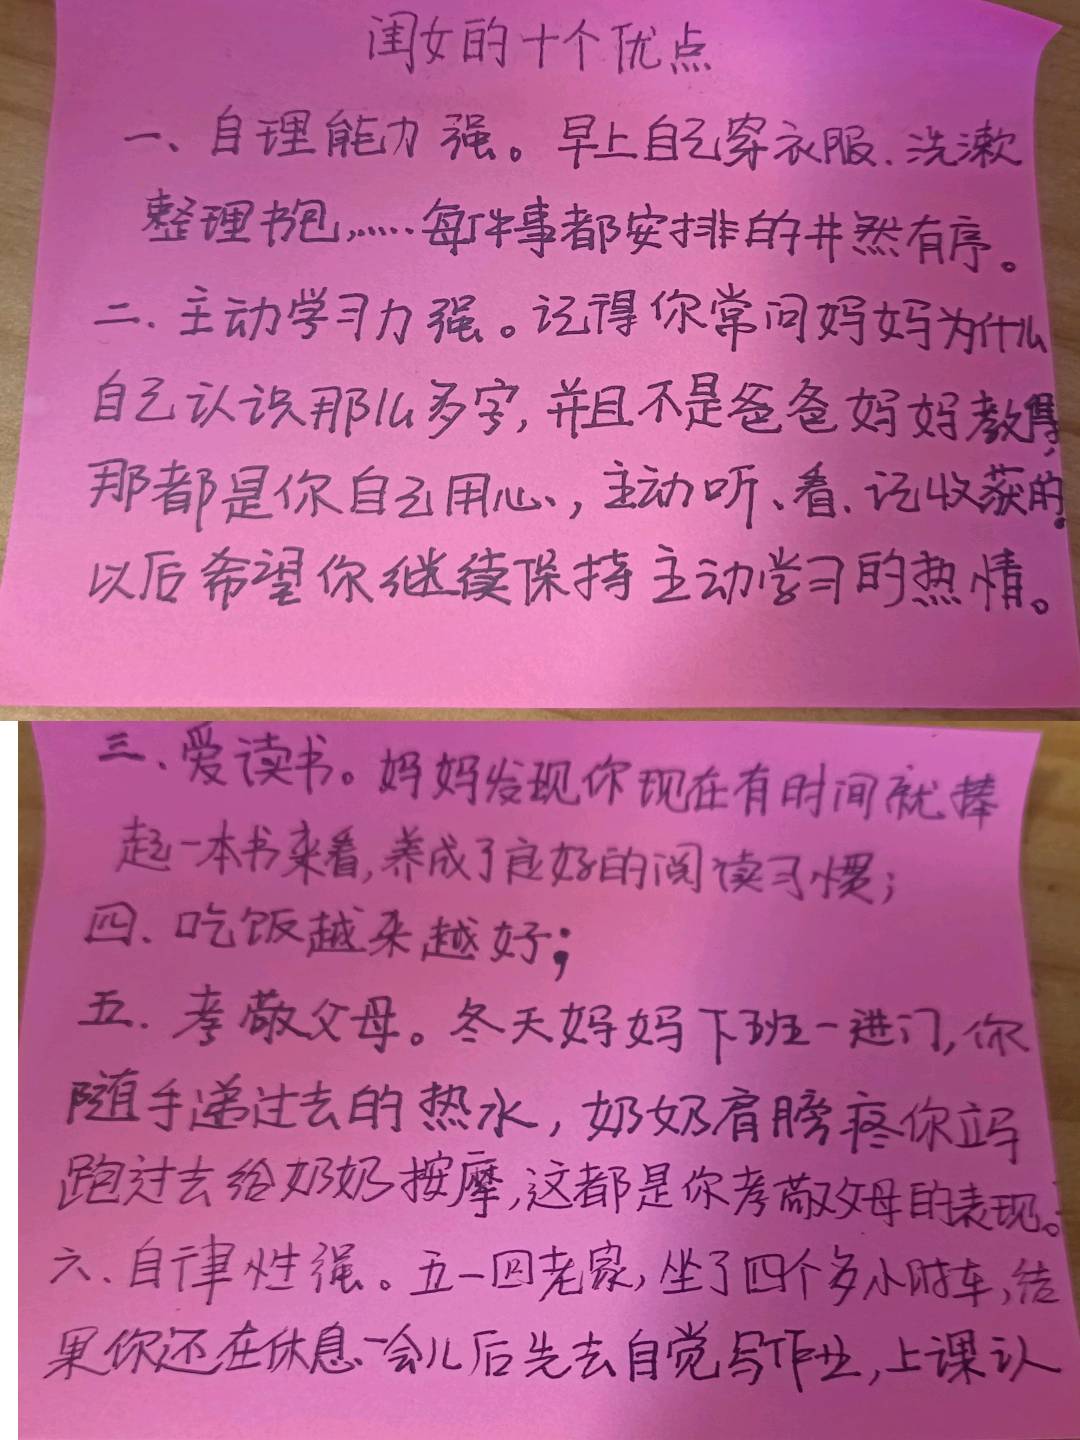 闺女的十个优点
一、自理能力强。早上自己穿衣服、洗漱
整理书包,……每件事都安排的井然有序。
二、主动学习力强。记得你常问妈妈为什么
自己认识那么多字,并且不是爸爸妈妈教得,
那都是你自己用心,主动听、看、记收获的。
以后希望你继续保持主动学习的热情。
三、爱读书。妈妈发现你现在有时间就捧
起一本书来看,养成了良好的阅读习惯;
四、吃饭越来越好;
五、孝敬父母。冬天妈妈下班一进门,你
随手递过去的热水,奶奶肩膀疼你立马
跑过去给奶奶按摩,这都是你孝敬父母的表现。
六、自律性强。五一回老家,坐了四个多小时车,结
果你还在休息一会儿后先去自觉写作业,上课认